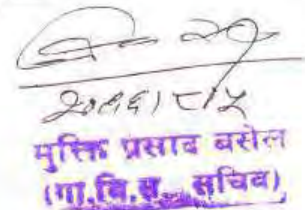 २०७६।८।५
मुक्ति प्रसाद बसेल
(गा.बि.स. सचिव)